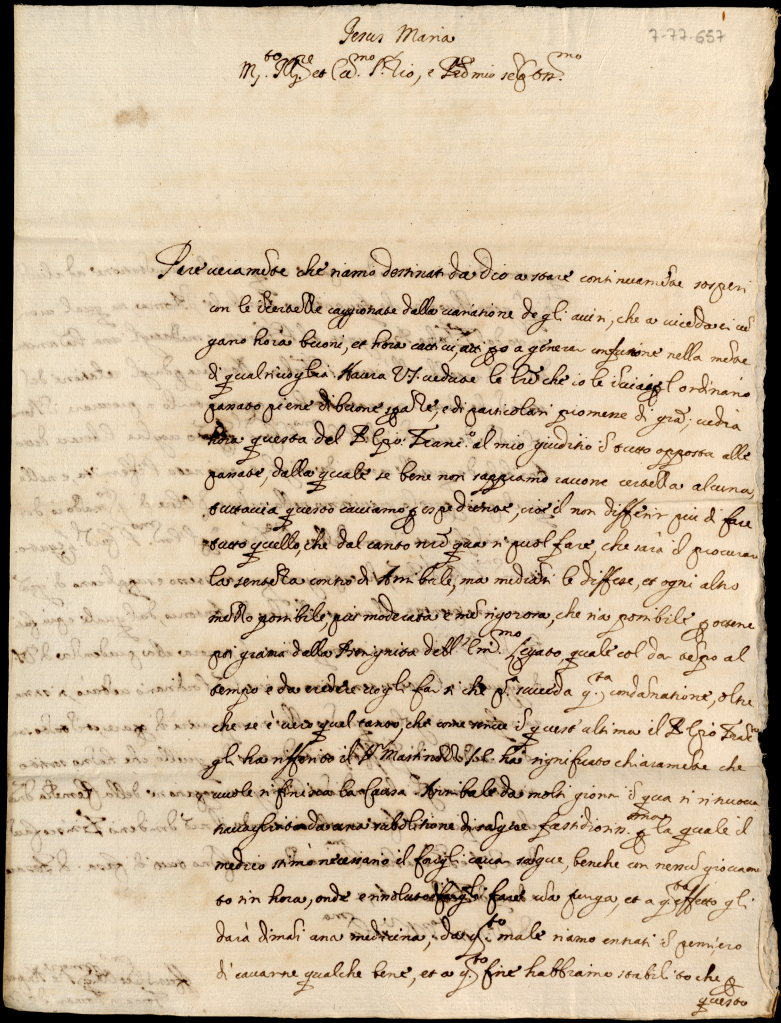 7-77-657
Jesus Maria
M.to Ill.re et Ecc.mo S.r Zio, e P.ron mio
Pare veramẽte che siamo destinati da Dio a stare continuamẽte sospesi
con le cervella caggionate dalla variatione de gli avisi, che a vicenda ci vẽ
gano hora buoni, et hora cattivi atti a generar confusione nella mẽte
di qualsivoglia. Havrà V.S. vedute le lr̃e che io le inviai l'ordinario
passato piene di buone spãze, e di particolari promesse di grã: vedrà
hora questa del P. Franc.o al mio giuditio tutto opposta alle
passate, dalla quale se bene non sappiamo cavone certezza alcuna,
tuttavia questo caviamo espediente, cioè il non differir più di fare
tutto quello, che dal canto nr̃o qua si puol fare, che sarà il procurar
la sentẽza contro di Annibale, ma mediãti le diffese, et ogni altro
mezzo possibile più moderata e mẽ rigorosa, che sia possibile ottene
poi gratia dalla Benignità dell' Em.mo Legato, quale col dar tẽpo al
tempo è da credere vogli far si che succeda q.ta condãnatione, oltre
che se è vero quel tanto, che come scrive quest' altima il P.
gli ha rifferito il S.r Martinozzi, S.E. ha significato chiaramẽte che
vuole si finisca la causa. Annibale da molti giorni qua si ritruova
travagliato da una rabolitione di sãgue fastidiosis.ma la quale il
medico stimò necessario il fargli cavar sãgue, benche con nessũ giovamẽ
to sin hora, onde è risoluto fargli fare una purga, et a q.to effetto gli
darà dimãi una medicina, da q.to male siamo entrati pensiero
di cavarne qualche bene, et a q.to fine habbiamo stabilito che
questo